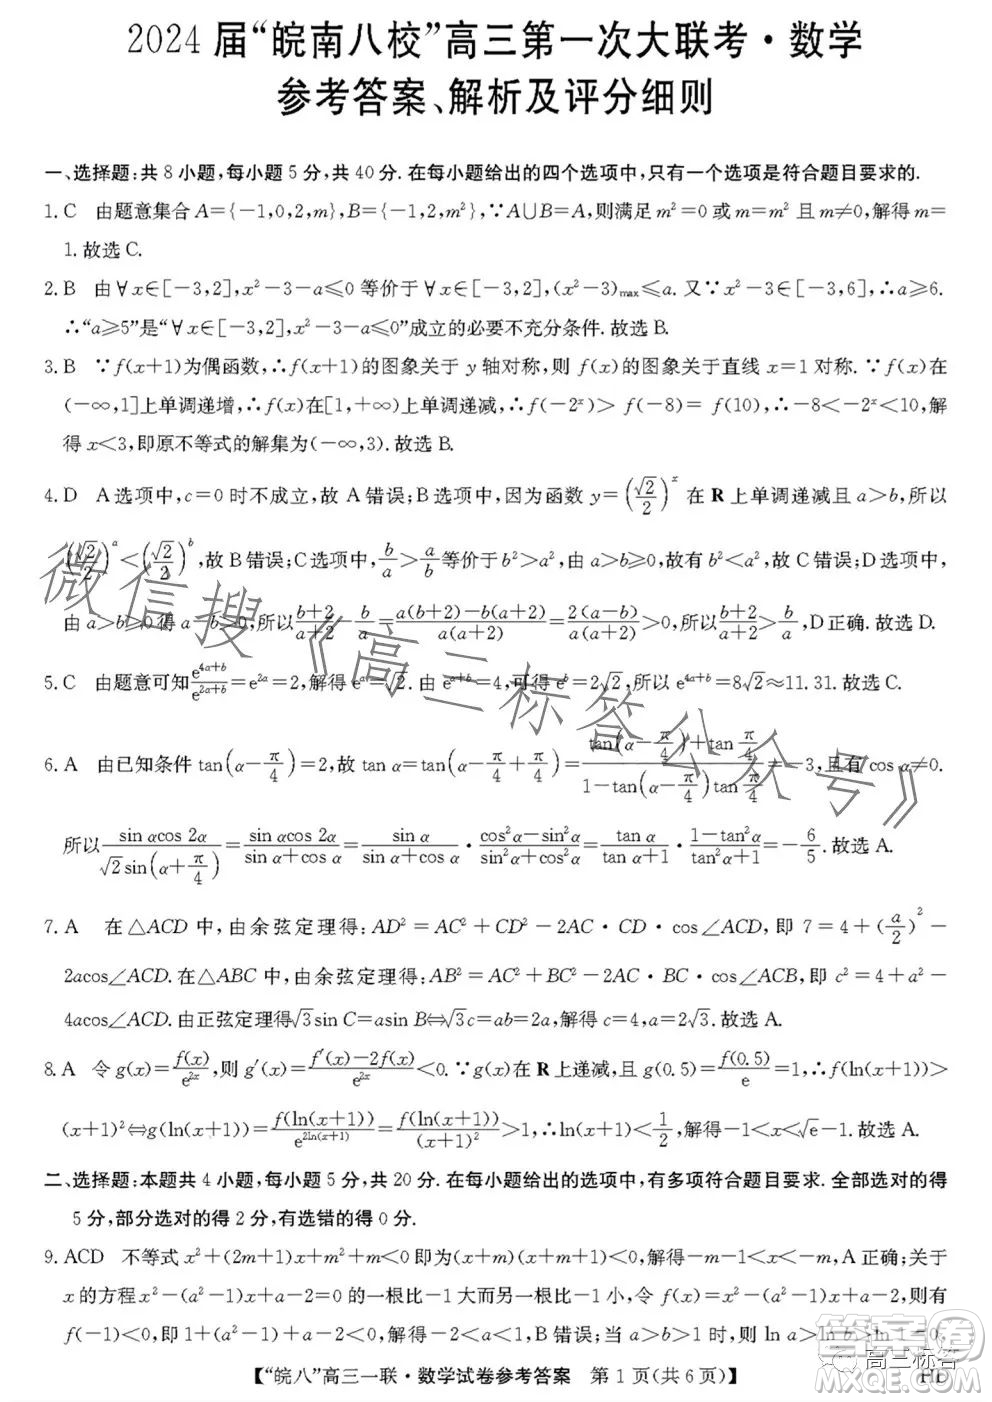 2024 届“皖南八校”高三第一次大联考·数学
参考答案、解析及评分细则
一、选择题:共 8 小题,每小题 5 分,共 40 分. 在每小题给出的四个选项中,只有一个选项是符合题目要求的.
1. C 由题意集合 A={-1,0,2,m},B={-1,2,m²},∵A∪B=A,则满足 m²=0 或 m=m² 且 m≠0,解得 m=
1. 故选 C.
2. B 由∀x∈[-3,2],x²-3-a≤0 等价于 x∈[-3,2],(x²-3)max≤a. 又∵x²-3∈[-3,6],∴a≥6.
∴“a≥5”是“∀x∈[-3,2],x²-3-a≤0”成立的必要不充分条件. 故选 B.
3. B ∵f(x+1)为偶函数,∴f(x+1)的图象关于 y 轴对称,则 f(x)的图象关于直线 x=1 对称. ∵f(x)在
(-∞,1]上单调递增,∴f(x)在[1,+∞)上单调递减,∴f(-2ˣ)> f(-8)= f(10),∴-8<-2ˣ<10,解
得 x<3,即原不等式的解集为(-∞,3). 故选 B.
4. D A 选项中,c=0 时不成立,故 A 错误;B 选项中,因为函数 y=(√2/2)^x 在 R 上单调递减且 a>b,所以
(√2/2)^a<(√2/2)^b,故 B 错误;C 选项中,b/a>a/b等价于 b²>a²,由 a>b≥0,故有 b²<a²,故 C 错误;D 选项中,
由 a>b≥0 得 a>0,所以(b+2)/(a+2)-b/a=(a(b+2)-b(a+2))/(a(a+2))=2(a-b)/(a(a+2))>0,所以(b+2)/(a+2)>b/a,D 正确. 故选 D.
5. C 由题意可知e^(4a+b)/e^(2a+b)=e^(2a)=2,解得 e^a=√2. 由 e^(a+b)=4,可得 e^b=2√2,所以 e^(4a+b)=8√2≈11.31. 故选 C.
6. A 由已知条件 tan(α-π/4)=2,故 tan α=tan(α-π/4+π/4)=(tan(α-π/4)+tan π/4)/(1-tan(α-π/4)tan π/4)=-3,且有 cos α≠0.
所以 sin αcos 2α/(√2sin(α+π/4))=sin αcos 2α/(sin α+cos α)=sin α/(sin α+cos α)·(cos²α-sin²α)/(sin²α+cos²α)=tan α/(tan α+1)·(1-tan²α)/(tan²α+1)=-6/5. 故选 A.
7. A 在△ACD 中,由余弦定理得:AD²=AC²+CD²-2AC·CD·cos∠ACD,即 7=4+(a/2)²-
2acos∠ACD. 在△ABC 中,由余弦定理得:AB²=AC²+BC²-2AC·BC·cos∠ACD,即 c²=4+a²-
4acos∠ACD. 由正弦定理得√3sin C=asin B⇔√3c=ab=2a,解得 c=4,a=2√3. 故选 A.
8. A 令 g(x)=f(x)/e^(2x),则 g′(x)=(f′(x)-2f(x))/e^(2x)<0. ∵g(x)在 R 上递减,且 g(0.5)=f(0.5)/e=1,∴f(ln(x+1))>
(x+1)²⇔g(ln(x+1))=f(ln(x+1))/e^(2ln(x+1))=f(ln(x+1))/(x+1)²>1,∴ln(x+1)<1/2,解得-1<x<√e-1. 故选 A.
二、选择题:本题共 4 小题,每小题 5 分,共 20 分. 在每小题给出的选项中,有多项符合题目要求. 全部选对的得
5 分,部分选对的得 2 分,有选错的得 0 分.
9. ACD 不等式 x²+(2m+1)x+m²+m<0 即为(x+m)(x+m+1)<0,解得-m-1<x<-m,A 正确;关于
x 的方程 x²-(a²-1)x+a-2=0 的一根比-1 大而另一根比-1 小,令 f(x)=x²-(a²-1)x+a-2,则有
f(-1)<0,即 1+(a²-1)+a-2<0,解得-2<a<1,B 错误;由 a>b>1,所以 ln a>ln b>ln 1=0.
“皖八”高三一联·数学试卷参考答案 第 1 页(共 6 页)
HD
微信搜《高三标答公众号》
高三标答
答案圈